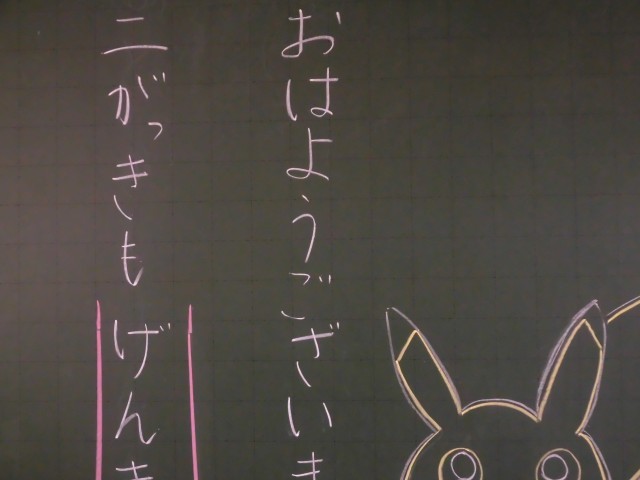 おはようございま
二がっきもげんき